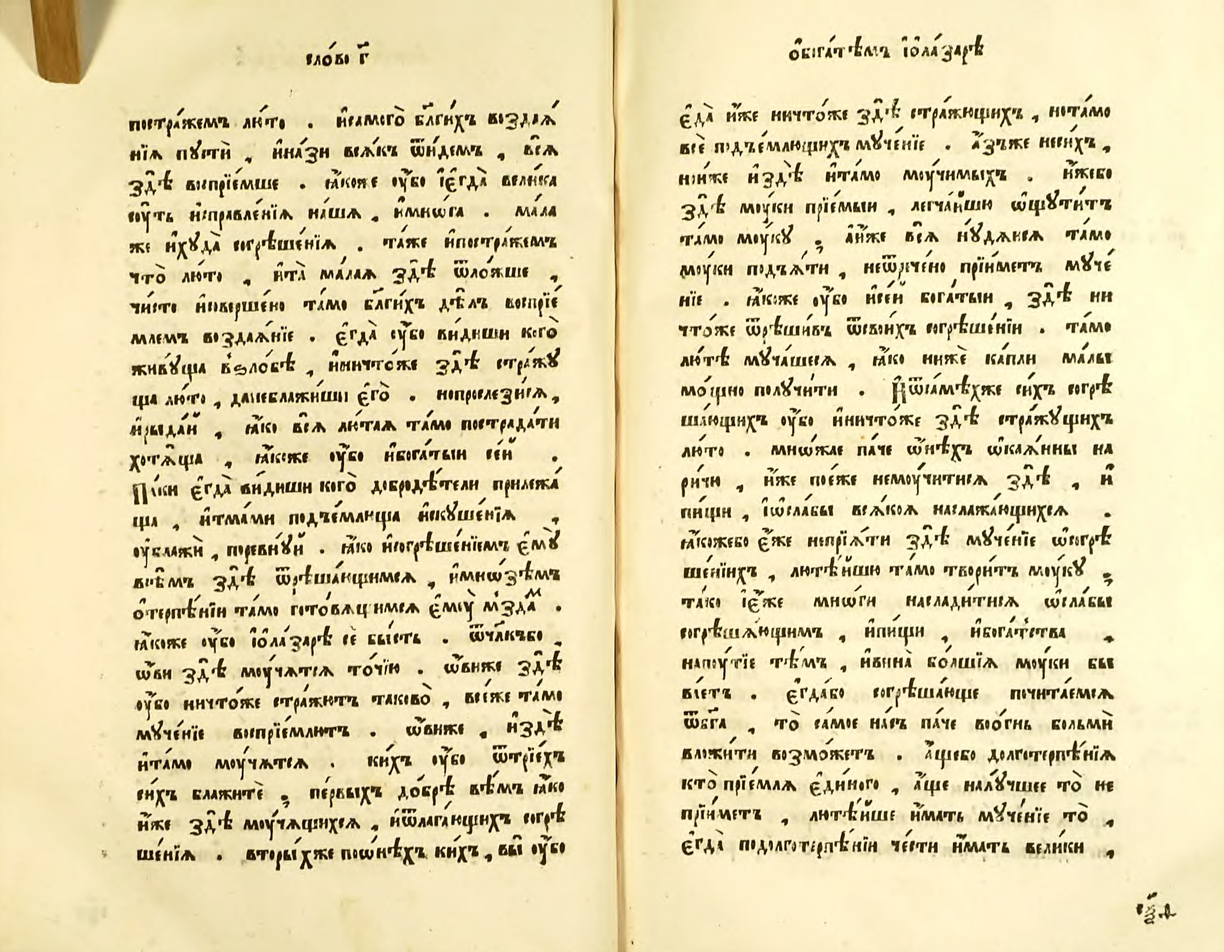 сло́во г҃
постра́жемъ лю́то . и҆самого̀ бл҃ги́хъ воздаѧ́
нїѧ пꙋстѝ , и҆на́зи всѧ́къ ѿи́демъ , всѧ̀
здѣ̀ воспрїе́мше . ꙗ҆́коже ᲂу҆̀бо і҆є҆гда̀ вели́ка
сꙋ́ть и҆справле́нїѧ на́ша , и҆мнѡ́га . ма́ла
же и҆хꙋда̀ согрѣше́нїѧ . та́же и҆постра́жемъ
что̀ лю́то , и҆та̀ ма́лаѧ здѣ̀ ѿло́жше ,
чи́сто и҆соверше́но та́мо бл҃ги́хъ дѣ́лъ воспрїе́
млемъ воздаѧ́нїе . є҆гда̀ ᲂу҆̀бо ви́диши кого̀
живꙋ́ща въѕло́бѣ , и҆ничто́же здѣ̀ стра́жꙋ
ща лю́то , данеблажи́ши є҆го̀ . нопрослези́сѧ ,
и҆рыда́й , ꙗ҆́ко всѧ̀ лю́таѧ та́мо пострада́ти
хотѧ́ща , ꙗ҆́коже ᲂу҆̀бо и҆бога́тыи се́й .
Па́ки є҆гда̀ ви́диши кого̀ добродѣ́тели прилежа́
ща , и҆тма́ми подъе́млюща и҆скꙋше́нїѧ ,
ᲂу҆блажѝ , поревнꙋ́й . ꙗ҆́ко и҆согрѣше́нїемъ є҆мꙋ̀
всѣ́мъ здѣ̀ ѿрѣша́ющимсѧ , и҆мнѡ́зѣмъ
ѻ҆терпѣ́нїи та́мо гото́вѧщимсѧ є҆моу̀ мъзда́м .
ꙗ҆́коже ᲂу҆̀бо і҆ѻ҆ла́зарѣ сѐ бы́сть . ѿчл҃къбо ,
ѡ҆́ви здѣ̀ моу́чѧтсѧ то́чїю . ѡ҆́виже здѣ̀
ᲂу҆̀бо ничто́же стра́жютъ таково̀ , все́же та́мо
мꙋче́нїе воспрїе́млютъ . ѡ҆́виже , и҆здѣ̀
и҆та́мо моу́чѧтсѧ . ки́хъ ᲂу҆̀бо ѿтрїе́хъ
си́хъ блажитѐ ; пе́рвыхъ до́брѣ вѣ́мъ ꙗ҆́ко
и҆́же здѣ̀ моу́чѧщихсѧ , и҆ѿлага́ющихъ согрѣ
ше́нїѧ . вторы́хже поѡ҆нѣ́хъ ки́хъ , вы̀ ᲂу҆̀бо
ѻ҆бога́тѣмъ і҆ѻ҆ла́зарѣ
є҆да̀ и҆́же ничто́же здѣ̀ стра́жющихъ , нота́мо
всѐ подъе́млющихъ мꙋче́нїе . а҆́зъже неси́хъ ,
ни́же и҆здѣ̀ и҆та́мо моучи́мыхъ . и҆́жебо
здѣ̀ моу́ки прїе́мыи , легча́йшю ѡ҆щꙋти́тъ
та́мо моу́кꙋ ; а҆и҆́же всѧ̀ нꙋ́дѧисѧ та́мо
моу́ки подъѧ́ти , неѿре́чено прїи́метъ мꙋче́
нїе . ꙗ҆́коже ᲂу҆̀бо и҆се́й бога́тыи , здѣ̀ ни
что́же ѿрѣши́въ ѿсвои́хъ согрѣше́нїи . та́мо
лю́тѣ мꙋ́чашесѧ , ꙗ҆́ко нижѐ ка́пли ма́лы
мо́щно полꙋчи́ти . И҆ѿсамѣ́хже си́хъ согрѣ
ша́ющихъ ᲂу҆̀бо и҆ничто́же здѣ̀ стра́жꙋщихъ
лю́то . мнѡ́жае па́че ѡ҆нѣ́хъ ѡ҆каѧ́нны на
ричѝ , и҆́же посе́же немоу́читисѧ здѣ̀ , и҆
пи́щи , і҆ѡ҆сла́бы всѧ́коѧ наслажа́ющихсѧ .
ꙗ҆́кожебо є҆́же неприѧ́ти здѣ̀ мꙋче́нїе ѡ҆согрѣ
ше́нїихъ , лютѣ́йшю та́мо твори́тъ моу́кꙋ ;
та́ко і҆є҆́же мнѡ́ги наслади́тисѧ ѡ҆сла́бы
согрѣша́ющимъ , и҆пи́щи , и҆бога́тства ,
напоу́тїе тѣ́мъ , и҆вина̀ бо́лшїѧ моу́ки бы
ва́етъ . є҆гда́бо согрѣша́юще почита́емсѧ
ѿбг҃а , то̀ са́мое на́съ па́че воо́гнь больмѝ
вложи́ти возмо́жетъ . а҆́щебо долготерпѣ́нїѧ
кто̀ прїе́млѧ є҆ди́ного , а҆́ще налꙋ́чшее то̀ не
прїи́метъ , лютѣ́йше и҆́мать мꙋче́нїе то̀ ,
є҆гда̀ подолготерпѣ́нїи че́сти и҆́мать вели́ки ,